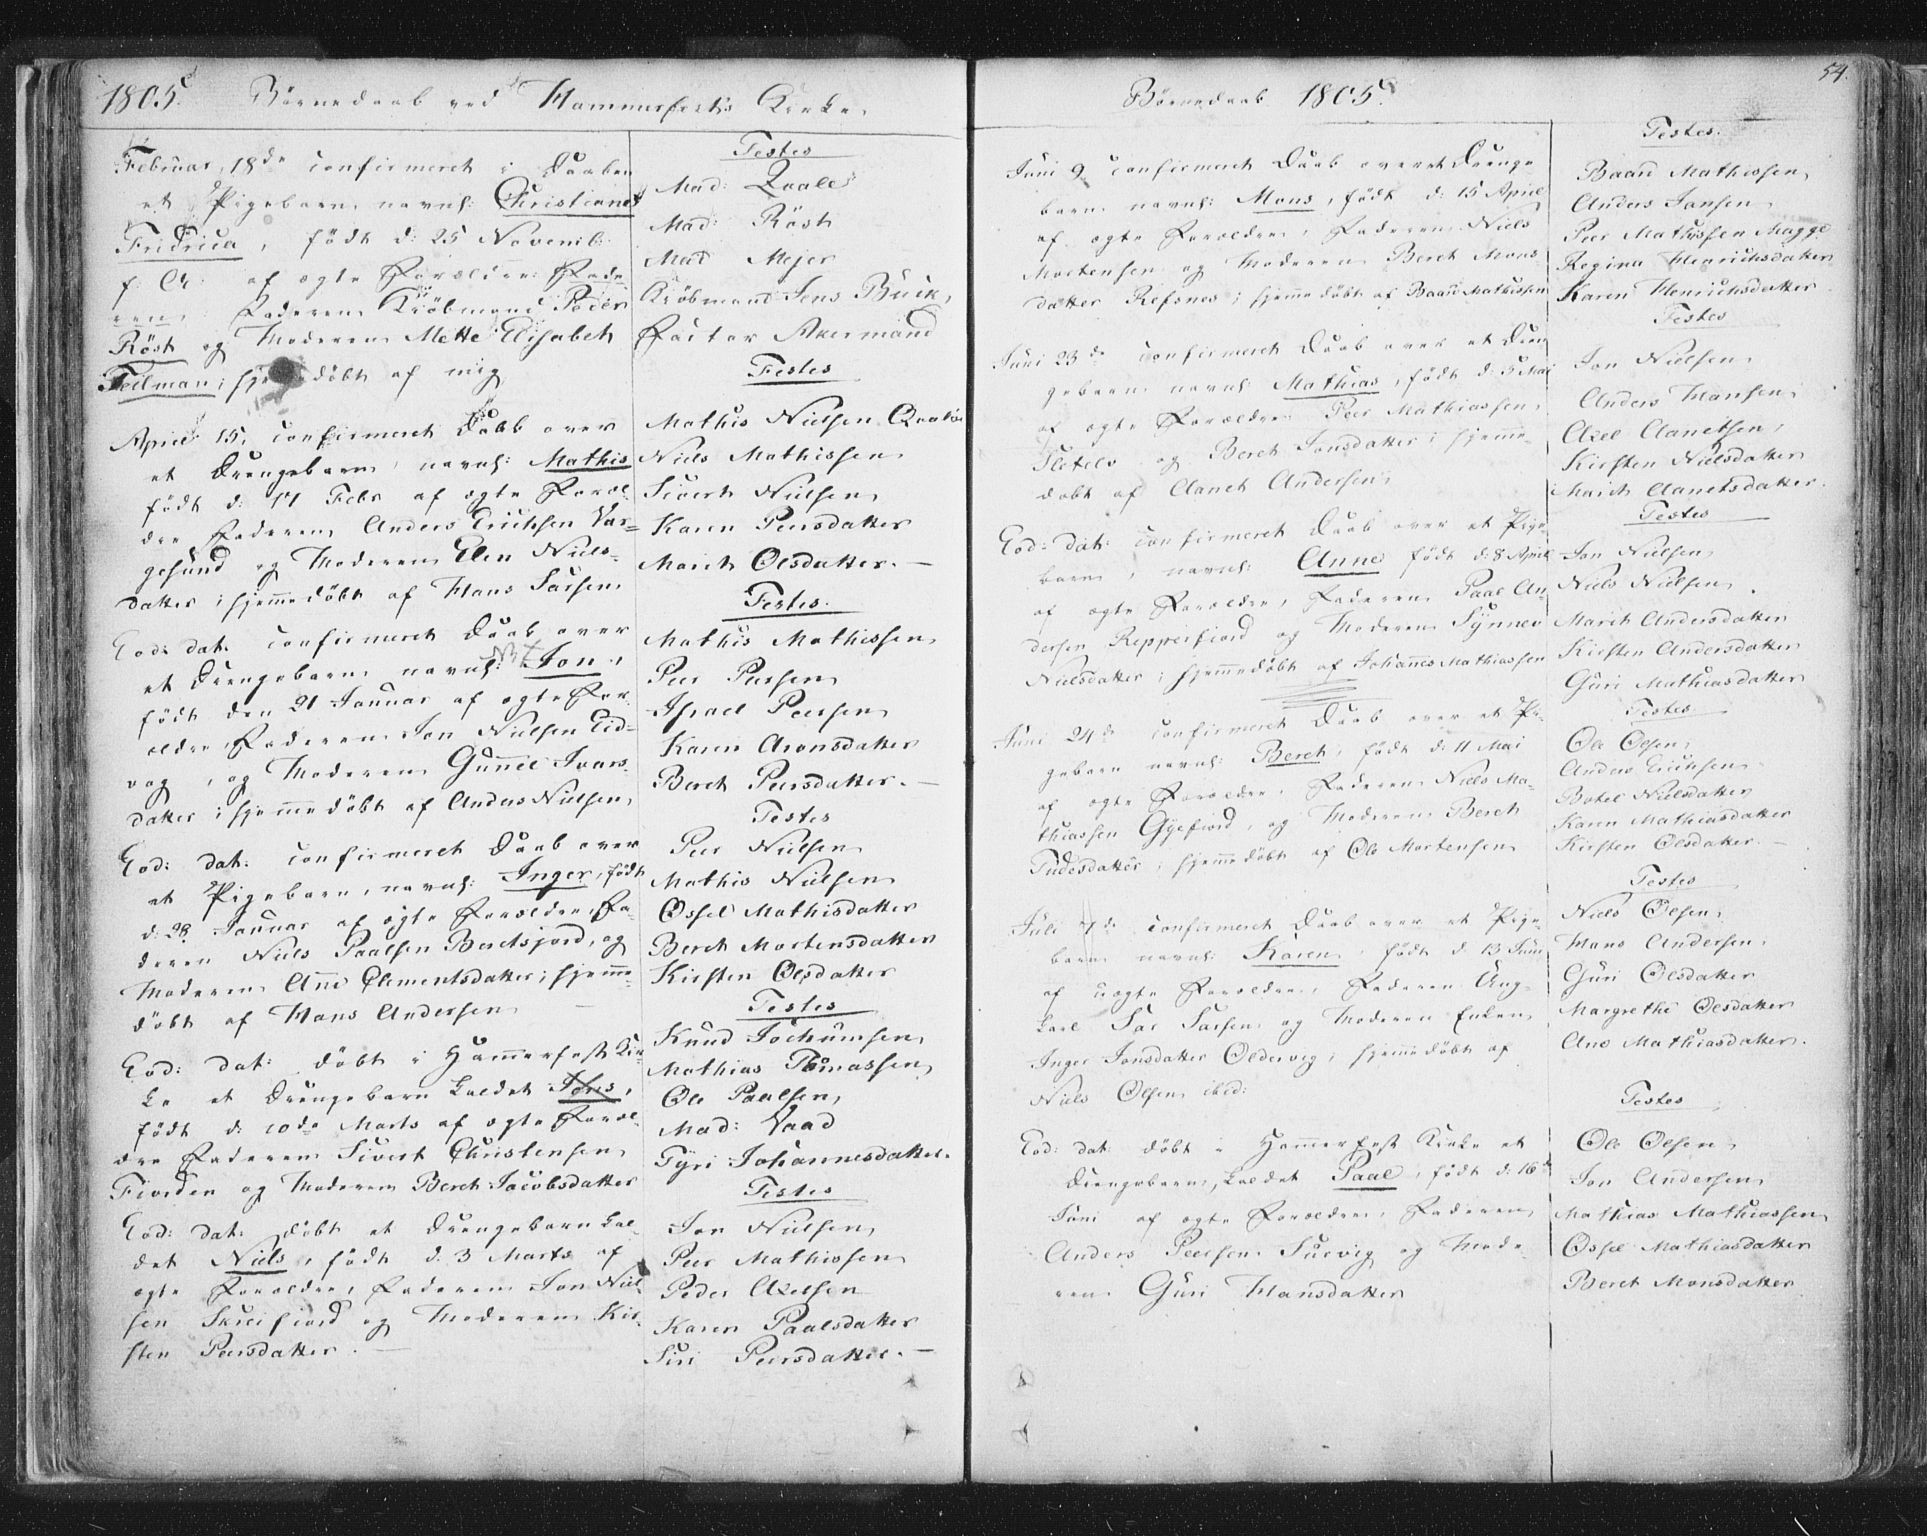 1805. Börnedaab ved Hammerfests Kirke.
Februar 18de confirmeret i Daaben
et Pigebarn navnl: Christiane
Fridrica, födt d: 25 Novemb:
f: A: af ægte Forældre: Fade
ren, Faderen Kiöbmand Peder
Röst og Moderen Mette Elisabet
Feilman; hjemedöbt af mig
April 15. confirmeret Daab over
et Drengebarn, navnl: Mathis
födt d: 17 Febr af ægte Foræl-
dre Faderen Anders Erichsen Var-
gesund og Moderen Elen Niels-
datter; hjemedöbt af Hans Larsen
Eod: dat: confirmeret Daab over
et Drengebarn navnl: Jon,
födt den 21 Januar af ægte For-
ældre Faderen Jon Nielsen Eid-
vog, og Moderen Gunil Ivars-
datter; hjemedöbt af Anders Nielsen
Eod: dat: confirmeret Daab over
et Pigebarn, navnl: Inger, födt
d: 28. Januar af ægte Forældre, Fa-
deren Niels Paalsen Beretsjord, og
Moderen Ane Clementsdatter; hjeme-
döbt af Hans Andersen
Eod: dat: döbt i Hamerfest Kir-
ke et Drengebarn kaldet Jens,
födt d: 10de Marts af ægte Foræl-
dre Faderen Sivert Christensen
Fiorden og Moderen Beret Jacobsdatter
Eod: dat: döbt et Drengebarn kal-
det Niels, födt d. 3 Marts af
ægte Forældre, Faderen Jon Niel-
sen Skreifiord og Moderen Kir-
sten Peersdatter. —
Testes
Mad: Qvale
Mad: Röst
Mad Mejer
Kiöbmand Jens Buck,
Factor Akermand
Testes
Mathis Nielsen Qvalsu
Niels Mathissen
Sivert Nielsen
Karen Peersdatter
Marit Olsdatter. —
Testes.
Mathis Mathissen
Peer Peersen
Israel Peersen
Karen Aronsdatter
Beret Peersdatter. —
Testes
Peer Nielsen
Mathis Nielsen
Ossel Mathisdatter
Beret Mortensdatter
Kirsten Olsdatter
Testes
Knud Jochumsen
Mathias Tomassen
Ole Paalsen,
Mad: Vaad
Tyri Johannesdatter.
Testes
Jon Nielsen
Peer Mathissen
Peder Axelsen
Karen Paalsdatter
Siri Peersdatter. —
Börnedaab 1805. 54.
Juni 9 confirmeret Daab over et Drenge
barn navnl: Mons, födt d: 15 April
af ægte Forældre, Faderen Niels
Mortensen og Moderen Beret Mons-
datter Refsnes; hjemedöbt af Baard Mathissen
Juni 23de confirmeret Daab over et Dren
gebarn navnl: Mathias, födt d: 5 Mai
af ægte Forældre Peer Mathiassen
og Beret Jonsdatter; hjeme-
döbt af Aanet Andersen
Eod: dat: confirmeret Daab over et Pige-
barn, navnl: Anne födt d: 8 April
af ægte Forældre, Faderen Paal An-
dersen Repperfiord og Moderen Synnev
Nielsdatter; hjemedöbt af Johannes Mathiassen
Juni 24de confirmeret Daab over et Pi-
gebarn navnl: Beret, födt d: 11 Mai
af ægte Forældre, Faderen Niels Ma-
thiassen Gyefiord, og Moderen Beret
Tudesdatter; hjemedöbt af Ole Mortensen
Juli 7de confirmeret Daab over et Pige
barn navnl: Karen, födt d 13 Juni
af uægte Forældre, Faderen Ung-
karl Lar Larsen og Moderen Enken
Inger Jonsdatter Oldervig; hjemedöbt af
Niels Olsen ibid:
Eod: dat: döbt i Hamerfest Kirke et
Drengebarn, kaldet Paal, födt d: 16
Juni af ægte Forældre, Faderen
Anders Peersen Survig og Mode-
ren Guri Hansdatter
Testes.
Baard Mathissen
Anders Jansen
Peer Mathissen Magge
Regina Henrichsdatter
Karen Henrichsdatter
Testes
Jon Nielsen
Anders Hansen
Axel Aanetsen,
Kirsten Nielsdatter
Marit Aanetsdatter.
Testes
Jon Nielsen
Niels Nielsen
Marit Andersdatter
Kirsten Andersdatter
Guri Mathiasdatter
Testes
Ole Olsen,
Anders Erichsen
Botel Nielsdatter
Karen Mathiasdatter
Kirsten Olsdatter. —
Testes
Niels Olsen,
Hans Andersen
Guri Olsdatter
Margrethe Olsdatter
Ane Mathiasdatter.
Testes
Ole Olsen
Jon Andersen
Mathias Mathiassen
Ossel Mathiasdatter
Beret Monsdatter